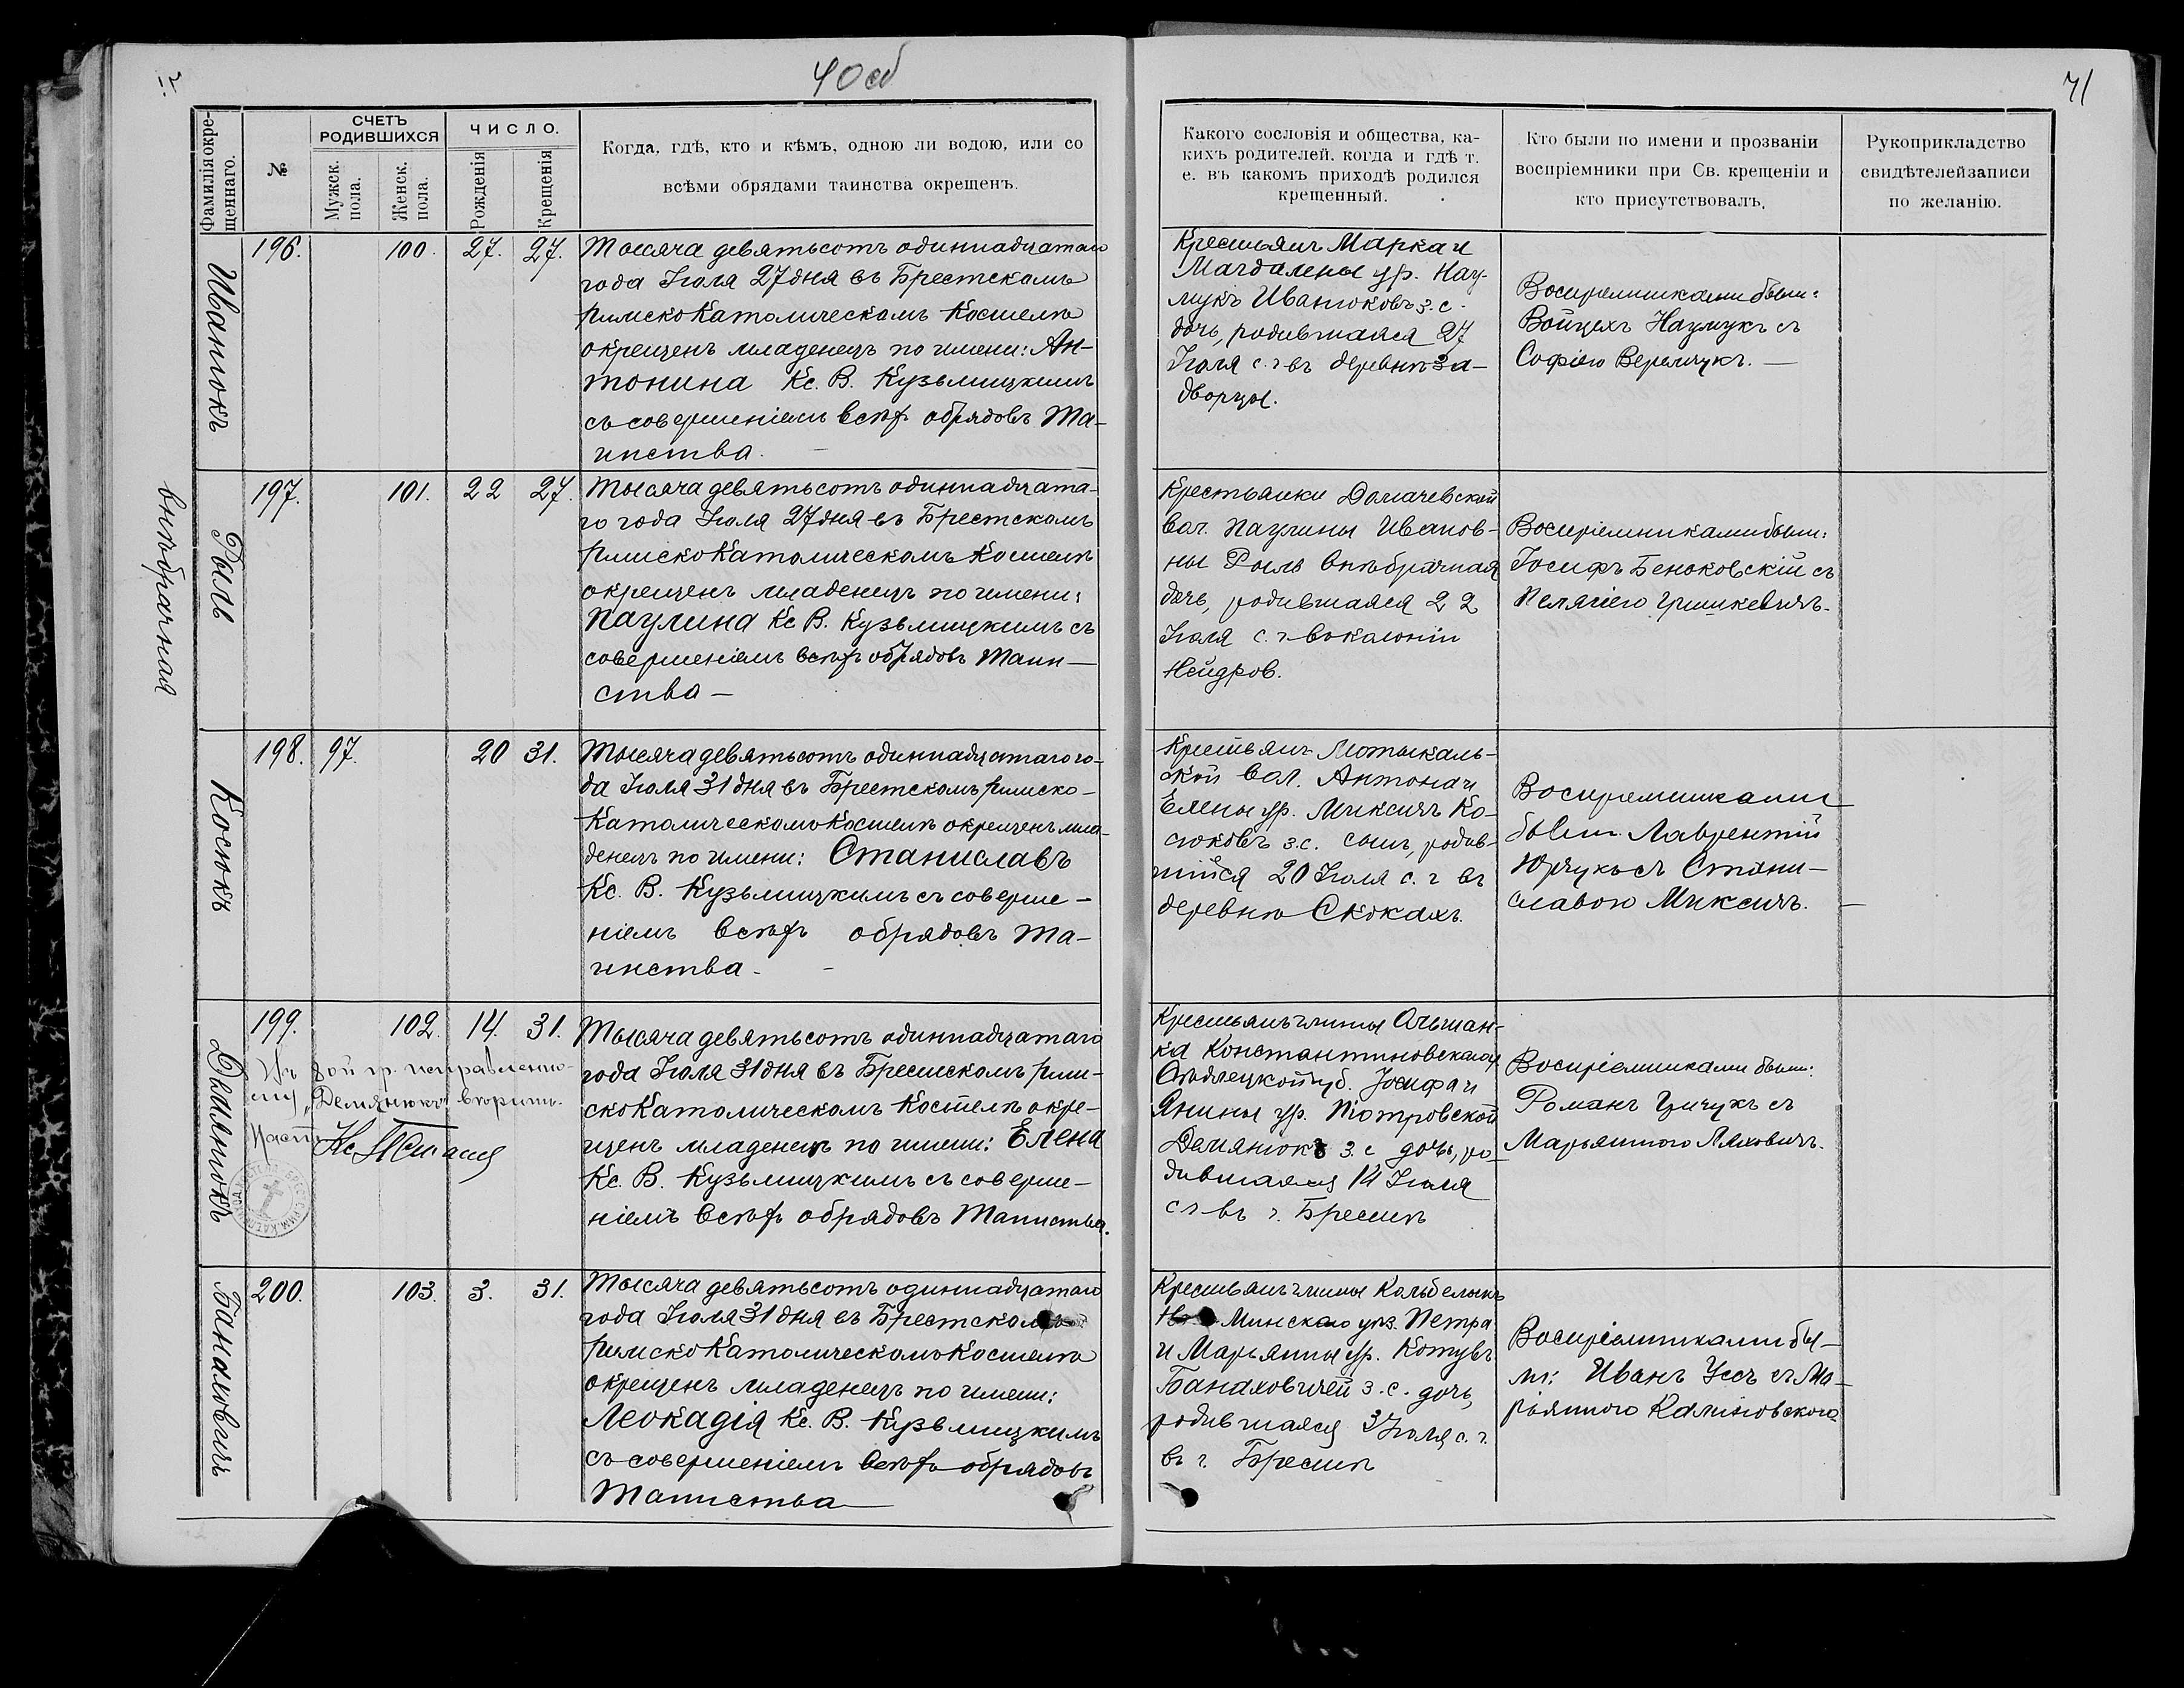 40 об
71
Фамилія окре-
щеннаго.
№
СЧЕТЪ
РОДИВШИХСЯ
Мужск.
пола.
Женск.
пола.
ЧИСЛО.
Рожденія
Крещенія
Когда, гдѣ, кто и кѣмъ, одною ли водою, или со
всѣми обрядами таинства окрещенъ.
Какого сословія и общества, ка-
кихъ родителей, когда и гдѣ т.
е. въ какомъ приходѣ родился
крещенный.
Кто были по имени и прозваніи
воспріемники при Св. крещеніи и
кто присутствовалъ.
Рукоприкладство
свидѣтелей записи
по желанію.
Иванюкъ
196.
100.
27.
27.
Тысяча девятьсотъ одиннадцатаго
года Іюля 27 дня въ Брестскомъ
Римско Католическомъ Костелѣ
окрещенъ младенецъ по имени: Ан-
тонина Кс. В. Кузьмицкимъ
съ совершеніемъ всѣхъ обрядовъ Та-
инства.
Крестьянъ Марка и
Магдалены ур. Нау-
мукъ Иванюковъ з. с.
дочь, родившаяся 27
Іюля с. г. въ деревнѣ За-
дворцы.
Воспріемниками были:
Войцехъ Наумукъ съ
Софіею Веремчукъ. —
Рыль
внѣбрачная
197.
101.
22
27.
Тысяча девятьсотъ одиннадцата-
го года Іюля 27 дня въ Брестскомъ
Римско Католическомъ Костелѣ
окрещенъ младенецъ по имени:
Паулина Кс В. Кузьмицкимъ съ
совершеніемъ всѣхъ обрядовъ Таин-
ства —
Крестьянки Домачевской
вол. Паулины Иванов-
ны Рыль внѣбрачная
дочь, родившаяся 22
Іюля с. г. въ колоніи
Нейдров.
Воспріемниками были:
Іосифъ Беньковскій съ
Пелагіею Гришкевичъ.
Косюкъ
198.
97.
20
31.
Тысяча девятьсотъ одиннадцатаго го-
да Іюля 31 дня въ Брестскомъ Римско-
Католическомъ Костелѣ окрещенъ мла-
денецъ по имени: Станиславъ
Кс. В. Кузьмицкимъ съ соверше-
ніемъ всѣхъ обрядовъ Та-
инства.
Крестьянъ Мотыкаль-
ской вол. Антона и
Елены ур. Миксичъ Ко-
сюковъ з. с. сынъ, родив-
шійся 20 Іюля с. г. въ
деревнѣ Скокахъ.
Воспріемниками
были Лаврентій
Юрчукъ съ Стани-
славою Миксичъ. —
Демянюкъ
199.
102.
14.
31.
Въ 8ой гр. исправленно-
му „Демянюкъ" вѣрить.
Наст. Кс.
Тысяча девятьсотъ одиннадцатаго
года Іюля 31 дня въ Брестскомъ Рим-
ско Католическомъ Костелѣ окре-
щенъ младенецъ по имени: Елена
Кс. В. Кузьмицкимъ съ соверше-
ніемъ всѣхъ обрядовъ Таинства.
Крестьянъ гмины Ольшан-
ка Константиновскаго у.
Сѣдлецкой губ. Іосифа и
Янины ур. Піотровской
Демянюкъ з. с дочь, ро-
дившаяся 14 Іюля
с г въ г. Брестѣ
Воспріемниками были:
Романъ съ
Марьянною Ляховичъ.
Банаховичъ
200.
103.
3.
31.
Тысяча девятьсотъ одиннадцатаго
года Іюля 31 дня въ Брестскомъ
Римско Католическомъ Костелѣ
окрещенъ младенецъ по имени:
Леокадія Кс. В. Кузьмицкимъ
съ совершеніемъ всѣхъ обрядовъ
Таинства —
Крестьянъ гмины
Минскаго уѣз. Петра
и Марьянны ур. Котувъ
Банаховичей з. с. дочь,
родившаяся 3 Іюля с. г.
въ г. Брестѣ
Воспріемниками бы-
ли: Иванъ Уссъ съ Ма-
рьянною Калиновскою